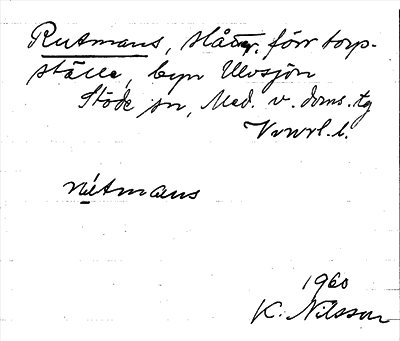 Rutmans, slåtr. förr torp-
ställe, byn Ulvsjön
Stöde sn, Med. v. doms. tg
Vnrl. l.
rútmans
1960
K. Nilsson